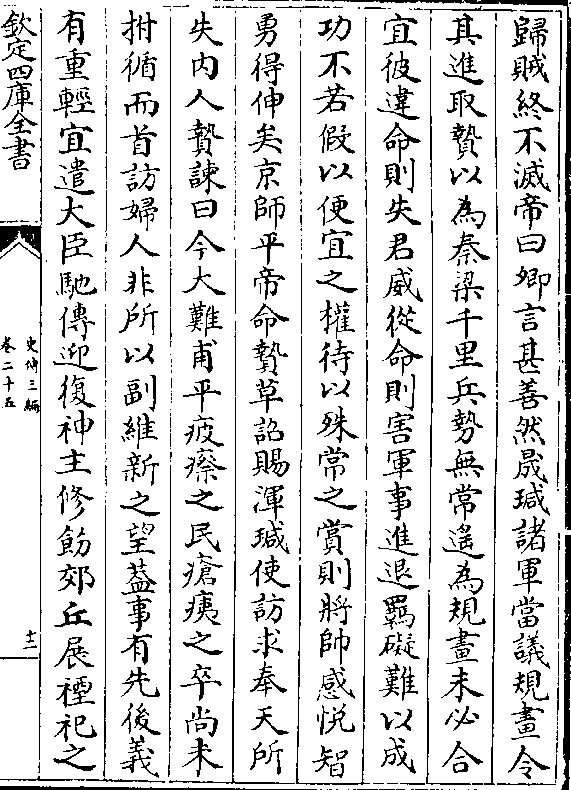 歸賊終不滅帝曰卿言甚善然晟瑊諸軍當議規畫令
其進取贄以為秦梁千里兵勢無常遙為規畫未必合
宜彼違命則失君威從命則害軍事進退羈礙難以成
功不若假以便宜之權待以殊常之賞則將帥感悅智
勇得伸矣京師平帝命贄草詔賜渾瑊使訪求奉天所
失内人贄諫曰今大難甫平疲瘵之民瘡痍之卒尚未
拊循而首訪婦人非所以副維新之望葢事有先後義
有重輕宜遣大臣馳傳迎復神主修飭郊丘展禋祀之
欽定四庫全書
史傳三編
卷二十五
十二